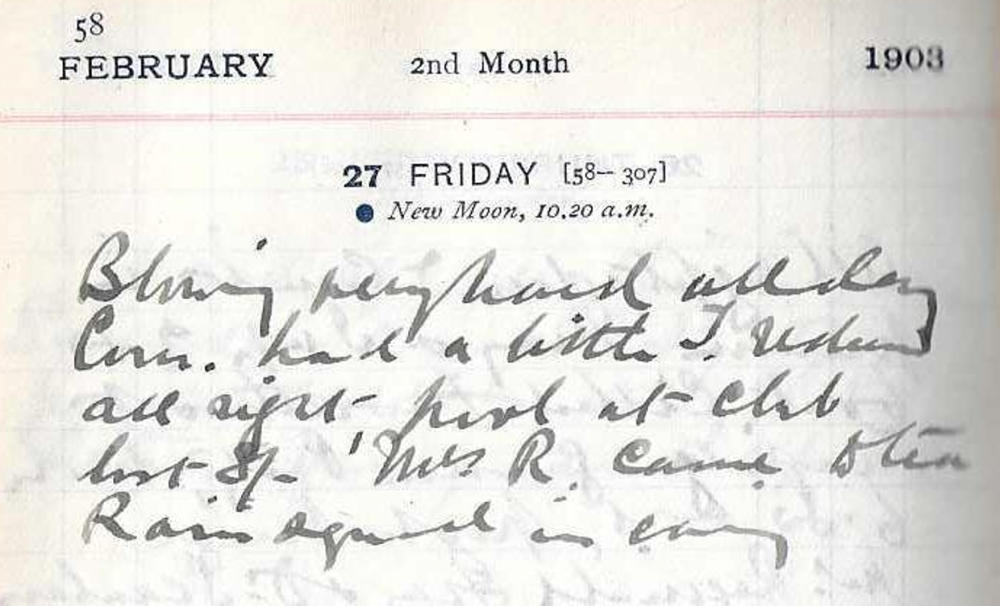 58
FEBRUARY 2nd Month 1903
27 FRIDAY [58–307]
New Moon, 10.20 a.m.
Blowing very hard all day
had a little T.
all right, pool at club
lost 3/- Mrs R. came to tea
Rain squall in eveng